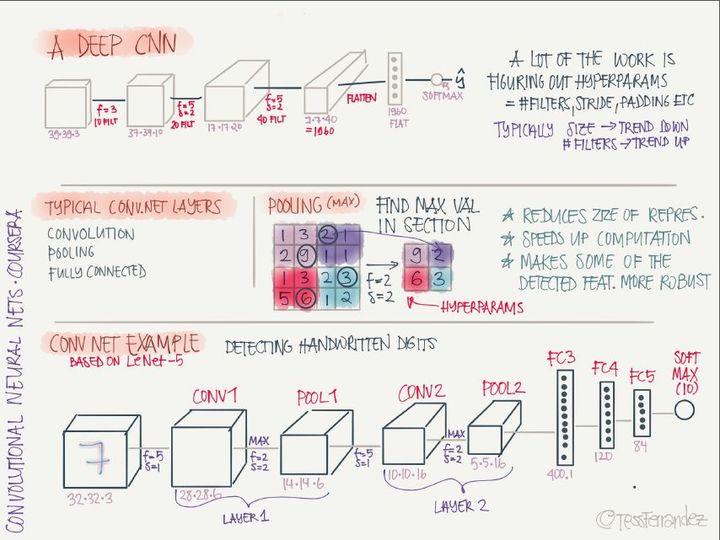 A DEEP CNN
39·39·3
f=3
10 FILT
37·37·10
f=5
s=2
20 FILT
17·17·20
f=5
s=2
40 FILT
7·7·40
=1960
FLATTEN
1960
FLAT
ŷ
SOFTMAX
A LOT OF THE WORK IS
FIGURING OUT HYPERPARAMS
= #FILTERS, STRIDE, PADDING ETC
TYPICALLY SIZE → TREND DOWN
# FILTERS → TREND UP
TYPICAL CONV.NET LAYERS
CONVOLUTION
POOLING
FULLY CONNECTED
POOLING (MAX)
FIND MAX VAL
IN SECTION
1 3 2 1
2 9 1 1
1 3 2 3
5 6 1 2
f=2
s=2
9 2
6 3
HYPERPARAMS
★ REDUCES ZIZE OF REPRES.
★ SPEEDS UP COMPUTATION
★ MAKES SOME OF THE
DETECTED FEAT. MORE ROBUST
CONV NET EXAMPLE
BASED ON LeNet-5
DETECTING HANDWRITTEN DIGITS
7
32·32·3
f=5
s=1
CONV1
28·28·6
MAX
f=2
s=2
POOL1
14·14·6
LAYER 1
f=5
s=1
CONV2
10·10·16
MAX
f=2
s=2
POOL2
5·5·16
LAYER 2
FC3
400.1
FC4
120
FC5
84
SOFT
MAX
(10)
CONVOLUTIONAL NEURAL NETS · COURSERA
©TessFerrandez